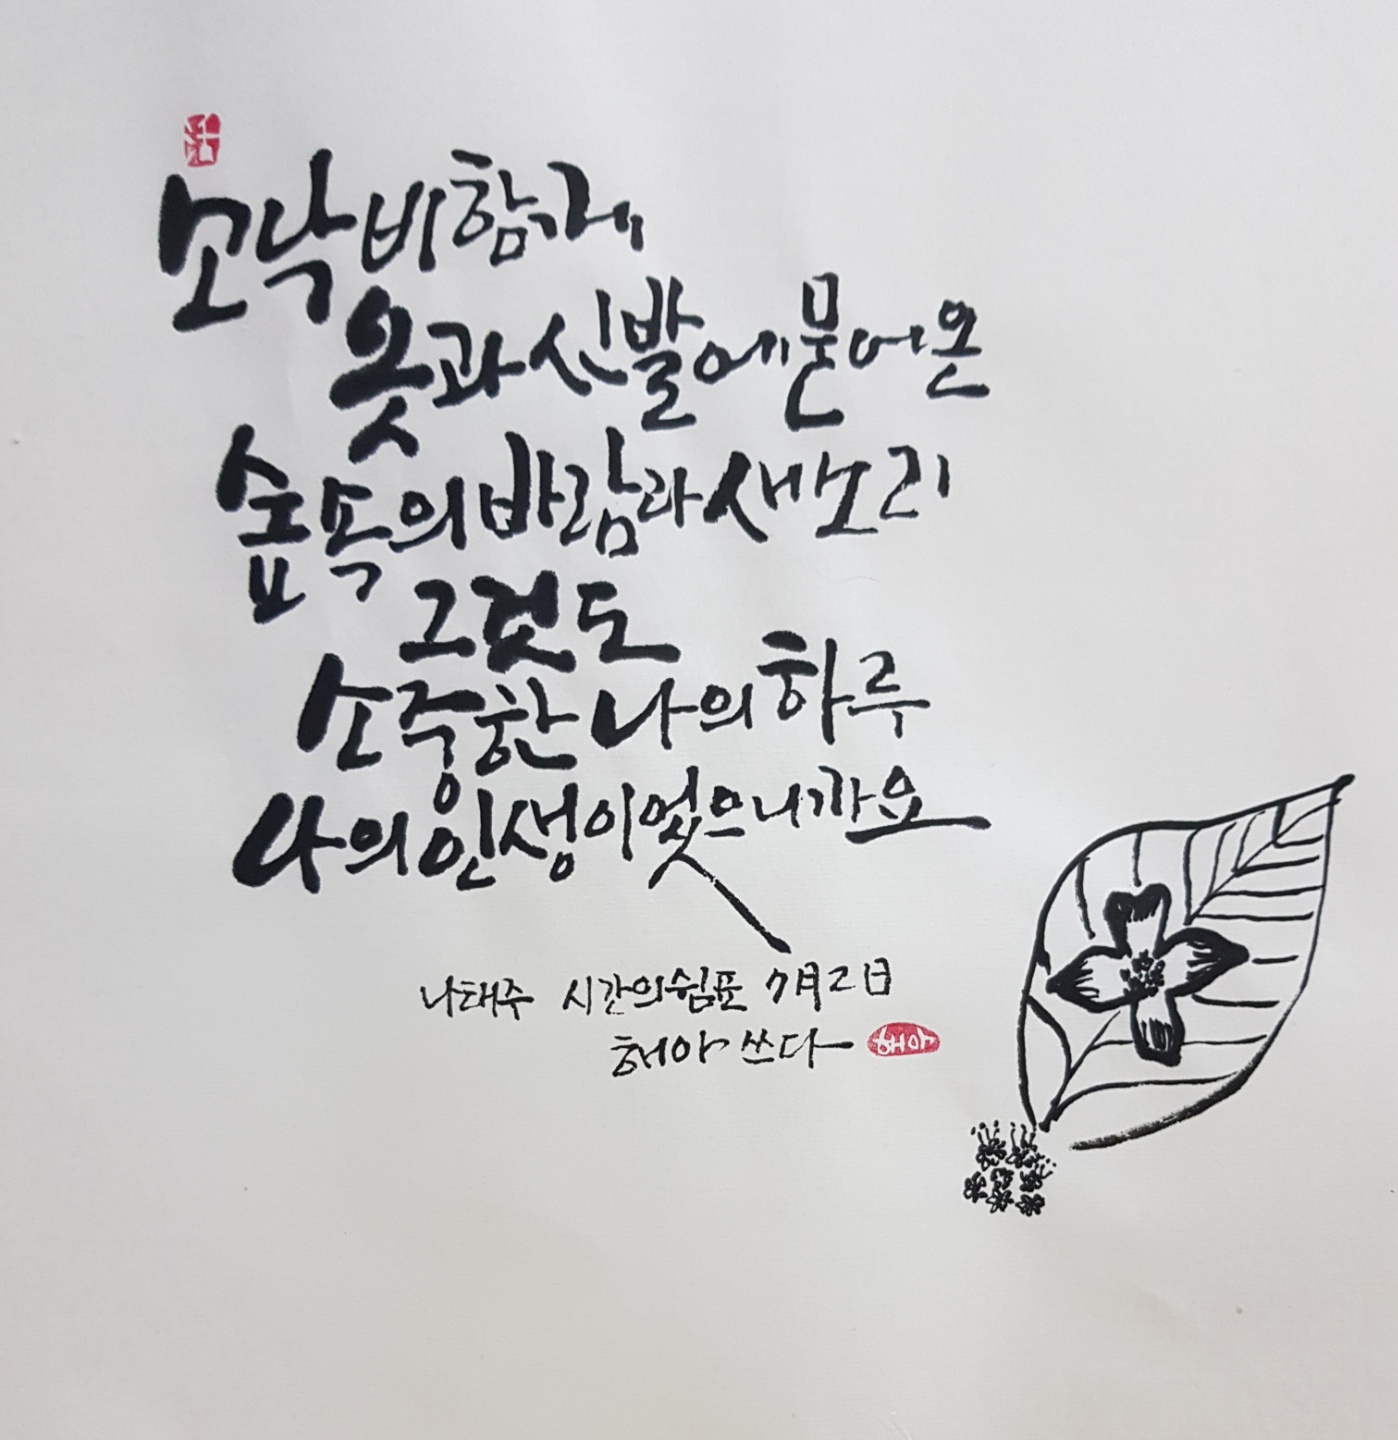 소낙비 함께
옷과 신발에 묻어온
숲속의 바람과 새소리
그것도
소중한 나의 하루
나의 인생이었으니까요
나태주 시간의쉼표 7月2日
혜아 쓰다
혜아